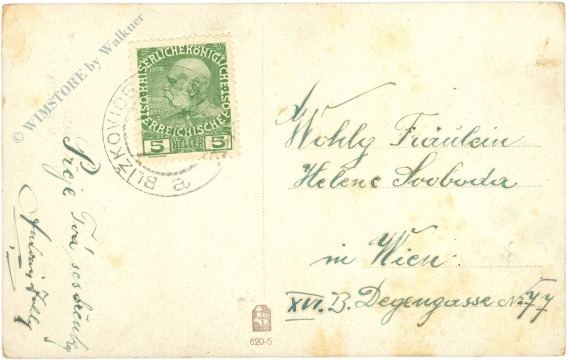 © WIMSTORE by Walkner
1908
KAISERLICHE KÖNIGLICHE ÖSTERREICHISCHE POST
5 HELLER 5
BLIŽKOVICE
Přeje Tvá sestřenka
Wohlg Fräulein
Helene Svoboda
in Wien.
XVI. B. Degengasse No 77
620-5